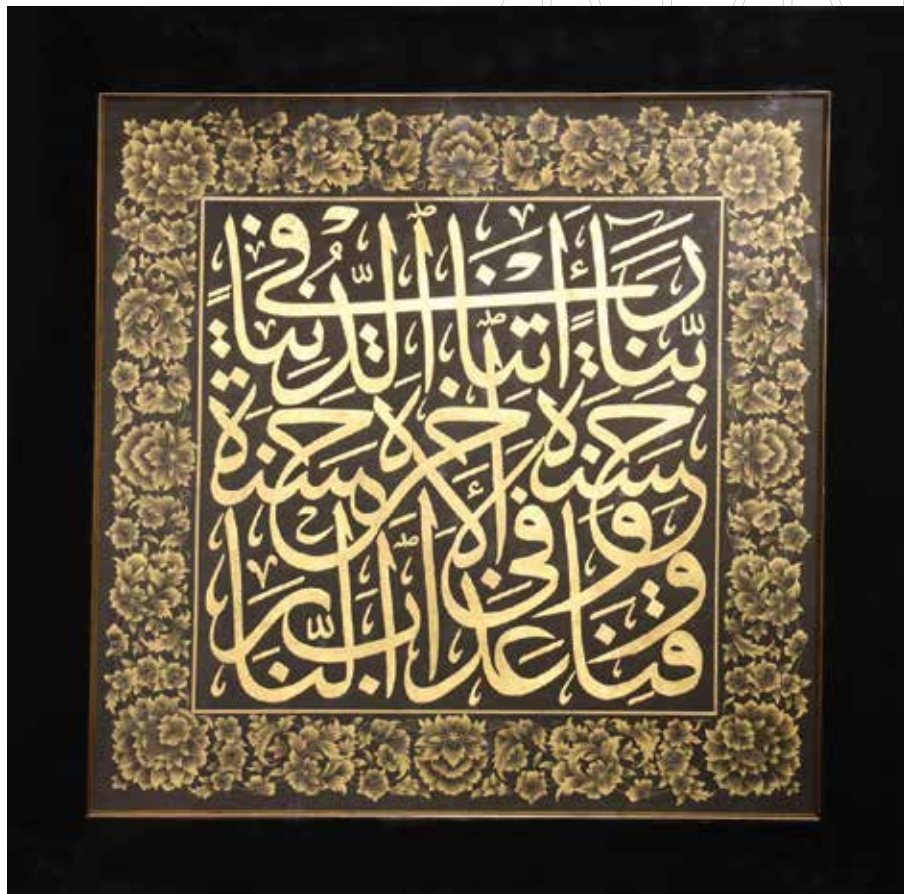 رَبَّنَا آتِنَا فِي الدُّنْيَا
حَسَنَةً وَفِي الْآخِرَةِ حَسَنَةً
وَقِنَا عَذَابَ النَّارِ